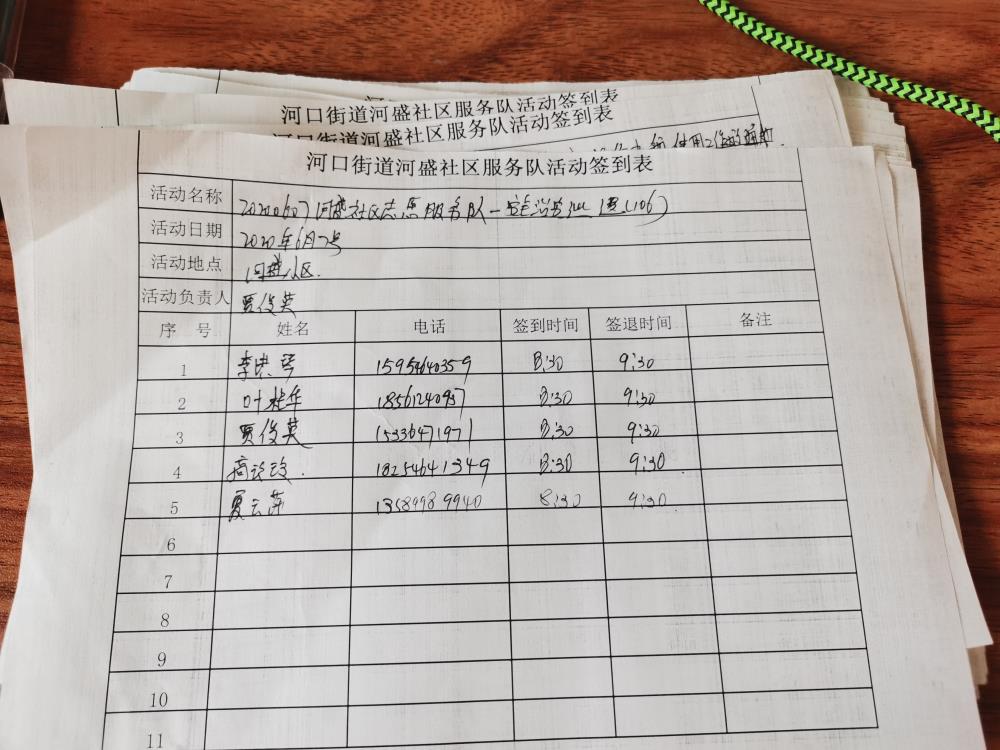 河口街道河盛社区服务队活动签到表
河口街道河盛社区服务队活动签到表
使用工作
河口街道河盛社区服务队活动签到表
活动名称 20200607河盛社区志愿服务队一
活动日期 2020年6月7号
活动地点 河盛小区.
活动负责人 贾俊英
序 号 姓名 电话 签到时间 签退时间 备注
1 李洪琴 15954640359 8:30 9:30
2 叶桂华 18561240937 8:30 9:30
3 贾俊英 15336471971 8:30 9:30
4 18254641349 8:30 9:30
5 夏云萍 13589989940 8:30 9:30
6
7
8
9
10
11